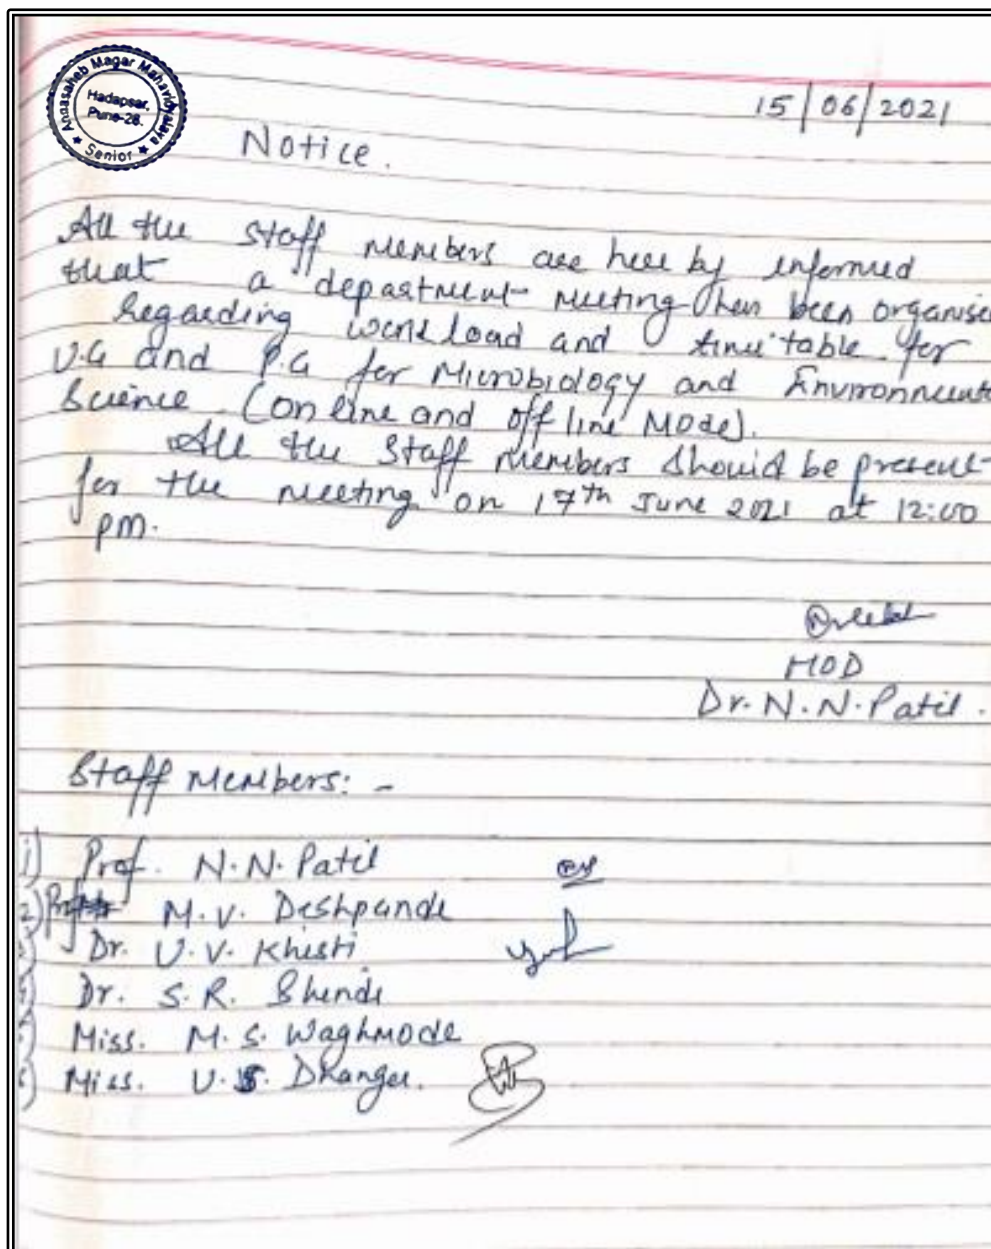 Annasaheb Magar Mahavidyalaya
Hadapsar,
Pune-28.
★ Senior ★
15/06/2021
Notice.
All the staff members are here by informed
that a department meeting has been organise
regarding work load and time table for
U.G and P.G for Microbiology and Environmenta
Science (on line and off line Mode).
All the staff members should be present
for the meeting on 17th June 2021 at 12:00
pm.
HOD
Dr. N. N. Patil.
Staff members: -
1) Prof. N. N. Patil
2) Prof. M. V. Deshpande
Dr. U. V. Khisti
Dr. S. R. Bhende
Miss. M. S. Waghmode
Miss. U. S. Dhangu.